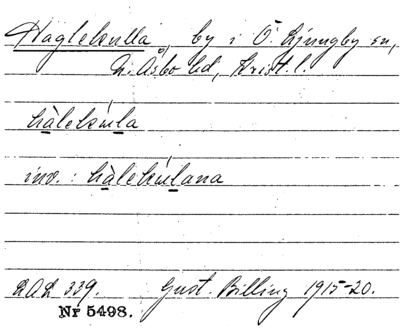 Haglekulla, by i Ö. Ljungby sn,
N. Åsbo hd, Krist. l.
hàlekúla
inv.: hàlekúlana
LAL 339. Gust. Billing 1915-20.
Nr 5498.